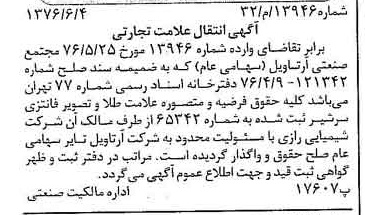 شماره ۱۳۹۴۶/م/۳۲ ۱۳۷۶/۶/۴
آگهی انتقال علامت تجارتی
برابر تقاضای وارده شماره ۱۳۹۴۶ مورخ ۷۶/۵/۲۵ مجتمع
صنعتی آرتاویل (سهامی عام) که به ضمیمه سند صلح شماره
۱۲۱۳۴۲- ۷۶/۴/۹ دفترخانه اسناد رسمی شماره ۷۷ تهران
می‌باشد کلیه حقوق فرضیه و متصوره علامت طلا و تصویر فانتزی
سرشیر ثبت شده به شماره ۶۵۳۴۲ از طرف مالک آن شرکت
شیمیایی رازی با مسئولیت محدود به شرکت آرتاویل تایر سهامی
عام صلح حقوق و واگذار گردیده است. مراتب در دفتر ثبت و ظهر
گواهی ثبت قید و جهت اطلاع عموم آگهی می‌گردد.
پ۱۷۶۰۷ اداره مالکیت صنعتی